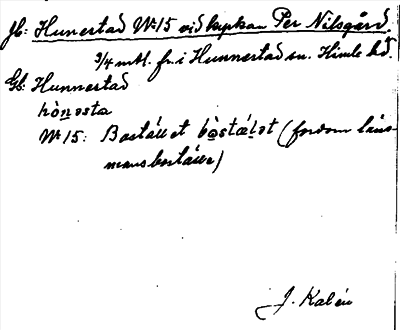 Jb: Hunnestad Nr 15 vid kyrkan Per Nilsgård.
3/4 mtl. fr. i Hunnestad sn. Himle hd.
Gb: Hunnestad
hònesta
Nr 15: Bostället bòstálet (fordom läns-
mansboställe)
J. Kalén